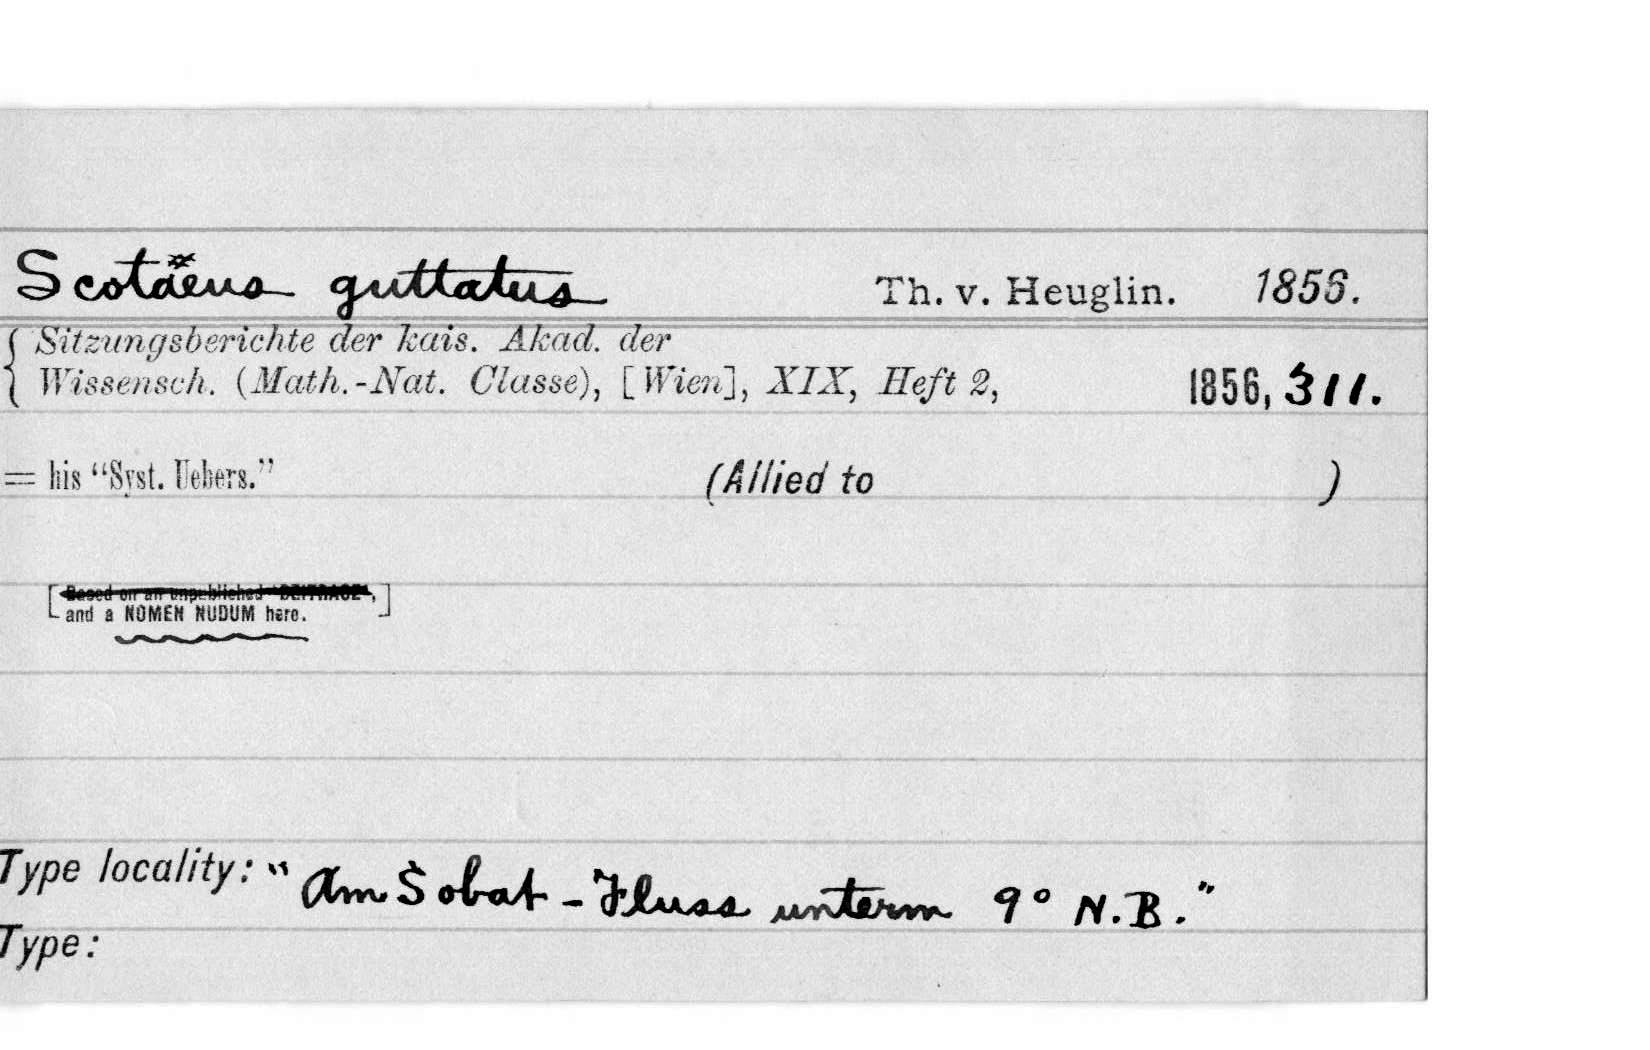 Scotäeus guttatus Th. v. Heuglin. 1856.
Sitzungsberichte der kais. Akad. der
Wissensch. (Math.-Nat. Classe), [Wien], XIX, Heft 2, 1856, 311.
= his “Syst. Uebers.” (Allied to )
[Based on an unpublished "BEITRAGE",
and a NOMEN NUDUM here.]
Type locality: "Am Sobat-Fluss unterm 9° N.B."
Type: